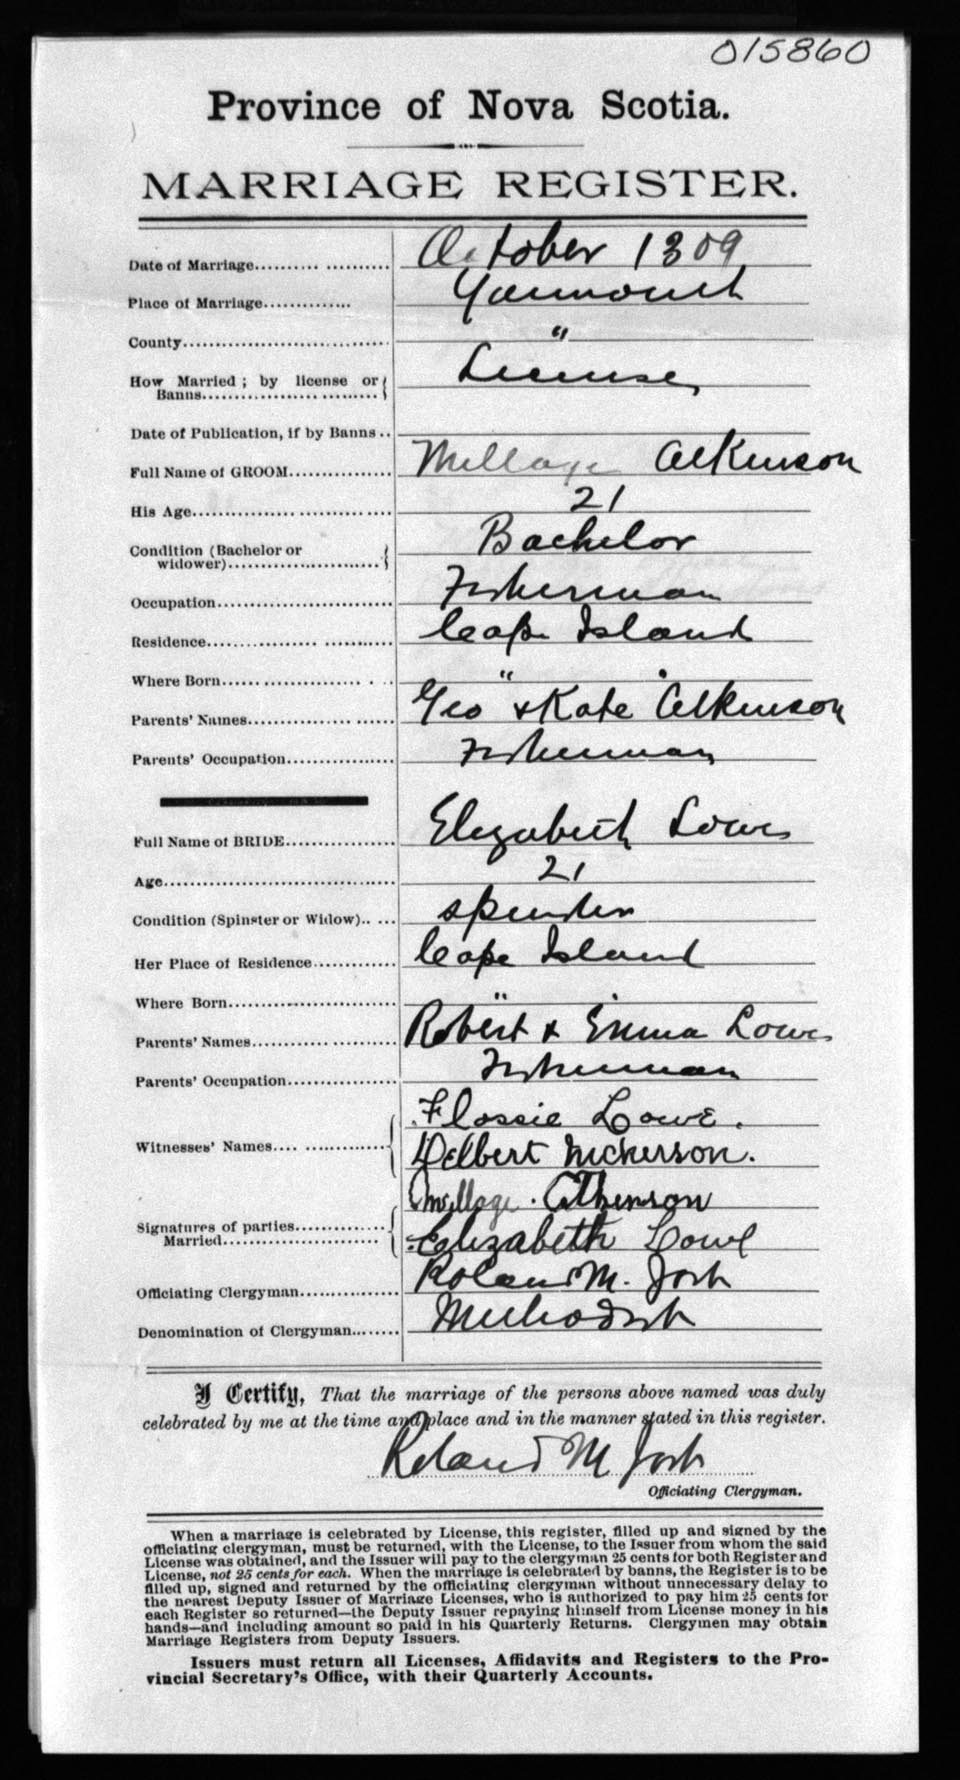 015860
Province of Nova Scotia.
MARRIAGE REGISTER.
Date of Marriage.................... October 13 09
Place of Marriage.............. Yarmouth
County................................ "
How Married ; by license or License
Banns.........................
Date of Publication, if by Banns..
Full Name of GROOM............... Millage Atkinson
His Age............................. 21
Condition (Bachelor or Bachelor
widower).........................
Occupation............................. Fisherman
Residence.......................... Cape Island
Where Born........................ "
Parents' Names..................... Geo & Kate Atkinson
Parents' Occupation................. Fisherman
Full Name of BRIDE................ Elizabeth Lowe
Age.................................. 21
Condition (Spinster or Widow)..... Spinster
Her Place of Residence............ Cape Island
Where Born........................ "
Parents' Names.................... Robert & Emma Lowe
Parents' Occupation................ Fisherman
Flossie Lowe.
Witnesses' Names.................. Delbert Nickerson.
Millage Atkinson
Signatures of parties............. Elizabeth Lowe
Married.......................
Officiating Clergyman................ Roland M.
Denomination of Clergyman....... Methodist
I Certify, That the marriage of the persons above named was duly
celebrated by me at the time and place and in the manner stated in this register.
Roland M
Officiating Clergyman.
When a marriage is celebrated by License, this register, filled up and signed by the
officiating clergyman, must be returned, with the License, to the Issuer from whom the said
License was obtained, and the Issuer will pay to the clergyman 25 cents for both Register and
License, not 25 cents for each. When the marriage is celebrated by banns, the Register is to be
filled up, signed and returned by the officiating clergyman without unnecessary delay to
the nearest Deputy Issuer of Marriage Licenses, who is authorized to pay him 25 cents for
each Register so returned—the Deputy Issuer repaying himself from License money in his
hands—and including amount so paid in his Quarterly Returns. Clergymen may obtain
Marriage Registers from Deputy Issuers.
Issuers must return all Licenses, Affidavits and Registers to the Pro-
vincial Secretary's Office, with their Quarterly Accounts.